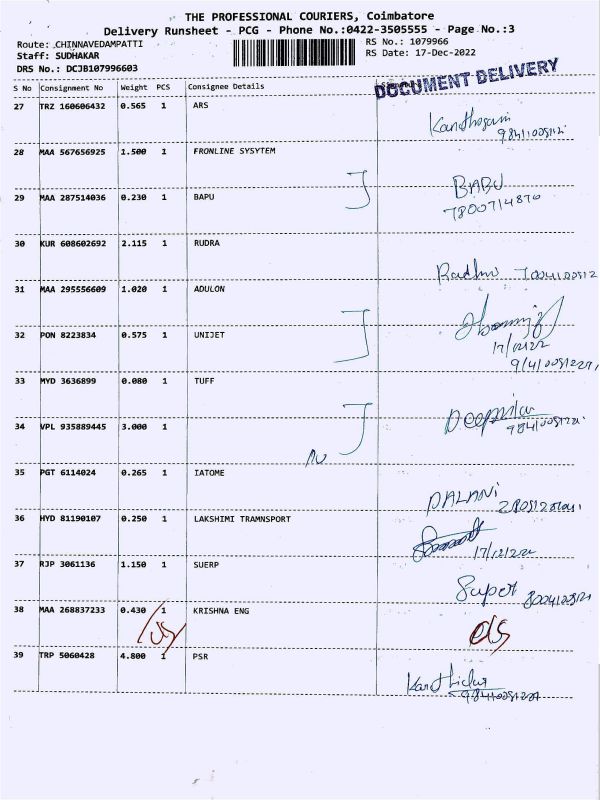 THE PROFESSIONAL COURIERS, Coimbatore
Delivery Runsheet - PCG - Phone No.:0422-3505555 - Page No.:3
Route: CHINNAVEDAMPATTI RS No.: 1079966
Staff: SUDHAKAR RS Date: 17-Dec-2022
DRS No.: DCJB107996603
DOCUMENT DELIVERY
S No Consignment No Weight PCS Consignee Details
27 TRZ 160606432 0.565 1 ARS
28 MAA 567656925 1.500 1 FRONLINE SYSYTEM
BABU
29 MAA 287514036 0.230 1 BAPU
30 KUR 608602692 2.115 1 RUDRA
31 MAA 295556609 1.020 1 ADULON
32 PON 8223834 0.575 1 UNIJET
33 MYD 3636899 0.080 1 TUFF
34 VPL 935889445 3.000 1
35 PGT 6114024 0.265 1 IATOME
PALANI
36 HYD 81190107 0.250 1 LAKSHIMI TRAMNSPORT
17/12/22
37 RJP 3061136 1.150 1 SUERP
Super
38 MAA 268837233 0.430 1 KRISHNA ENG
39 TRP 5060428 4.800 1 PSR